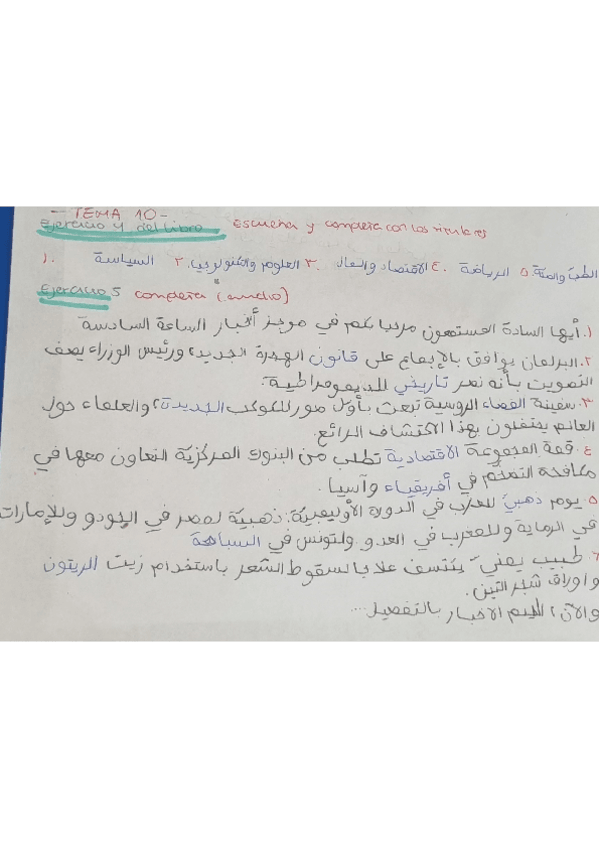 - TEMA 10 -
Ejercicio 4 del libro Escucha y completa con los titulares
١. السياسة ٢. العلوم والتكنولوجيا ٣. الاقتصاد والمال ٤. الرياضة ٥. الطب والصحة
Ejercicio 5 completa (audio)
١. أيها السادة المستمعون مرحبا بكم في موجز أخبار الساعة السادسة
٢. البرلمان يوافق بالإجماع على قانون الهجرة الجديد، ورئيس الوزراء يصف
التصويت بأنه نصر تاريخي للديموقراطية.
٣. سفينة الفضاء الروسية تبعث بأول صور للكوكب الجديدة، والعلماء حول
العالم يحتفلون بهذا الاكتشاف الرائع.
٤. قمة المجموعة الاقتصادية تطلب من البنوك المركزية التعاون معها في
مكافحة التضخم في أفريقياء وآسيا.
٥. يوم ذهبي للعرب في الدورة الأوليمبية: ذهبية لمصر في الجودو وللإمارات
في الرماية وللمغرب في العدو ولتونس في السباحة
٦. طبيب يمني يكتسف علاجا لسقوط الشعر باستخدام زيت الزيتون
واوراق شجر التين.
والآن، إليكم الاخبار بالتفصيل...